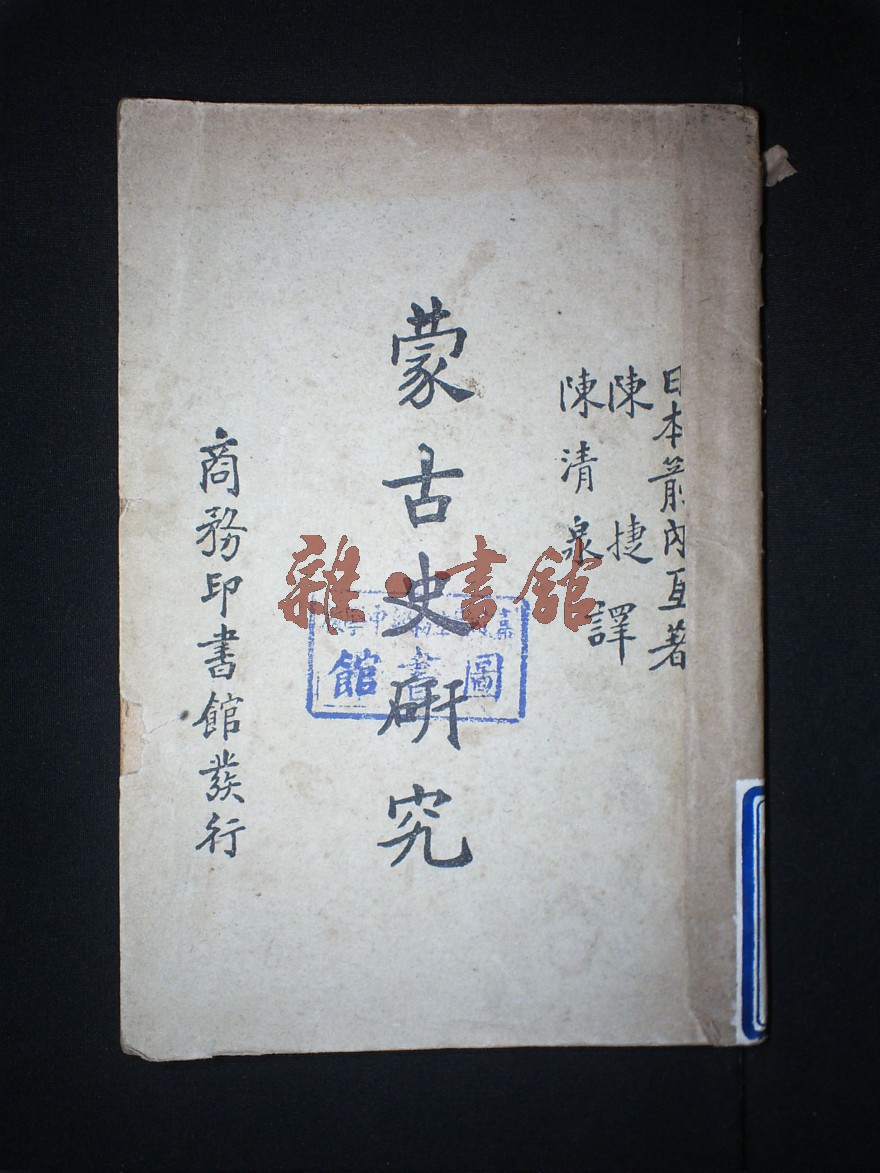 日本箭內亙著
陳捷
陳清泉
譯
蒙古史研究
商務印書館發行
圖書館
雜·書館